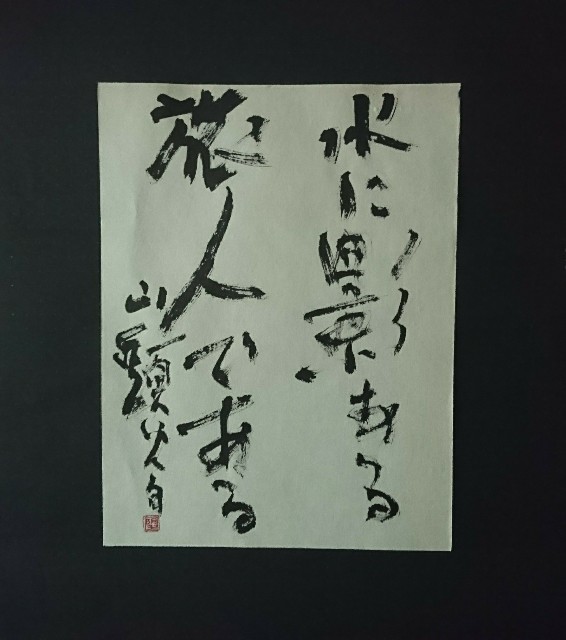 水に影ある
旅人である
山頭火 自